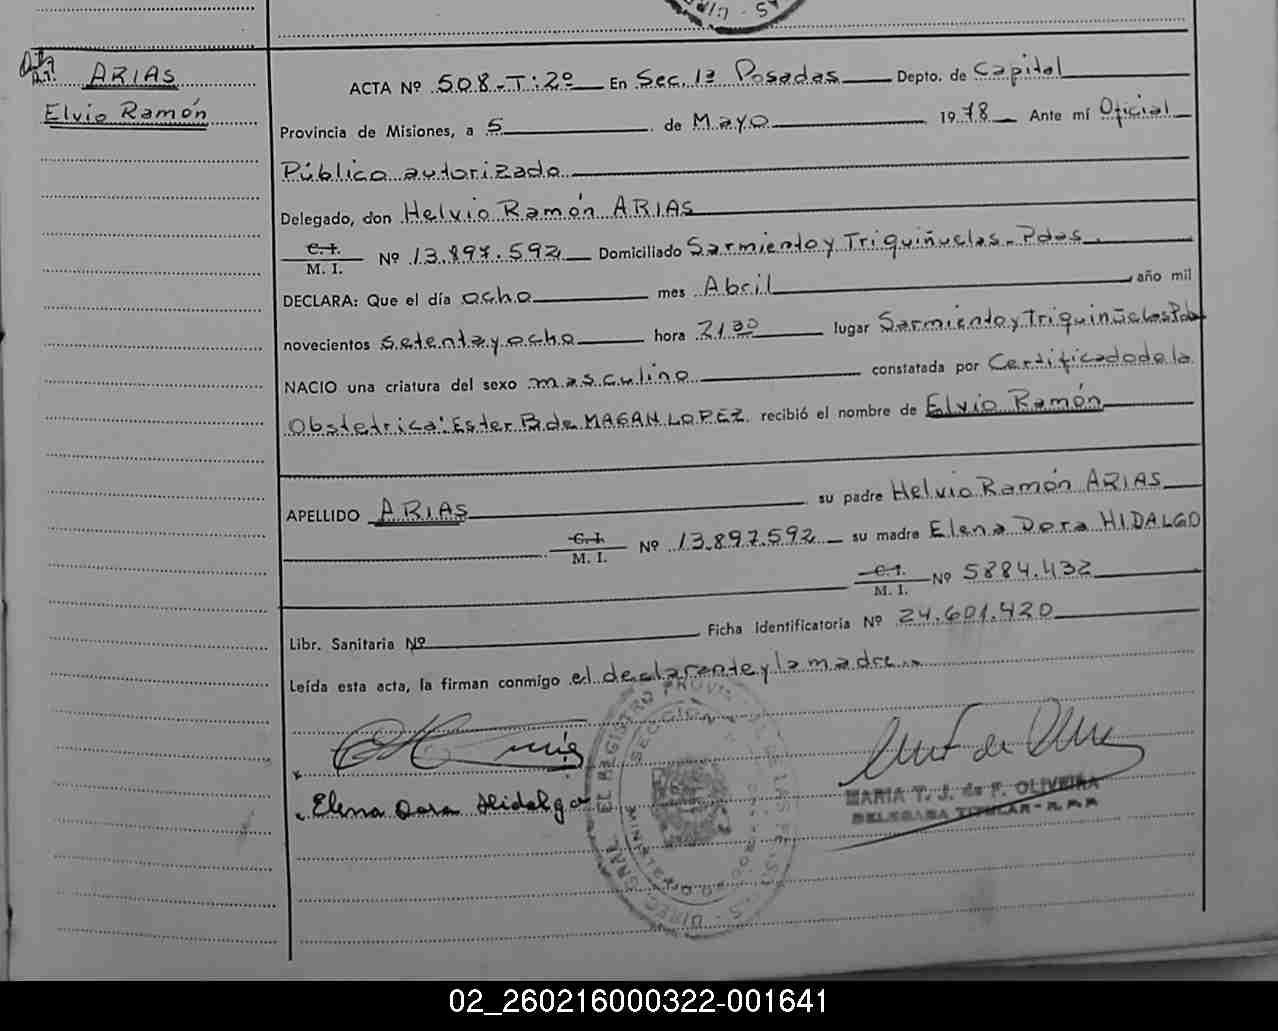 ARIAS
Elvio Ramón
ACTA Nº 508-T:2º En Sec. 1ª Posadas Depto. de Capital
Provincia de Misiones, a 5 de Mayo 1978 Ante mí Oficial
Público autorizado
Delegado, don Helvio Ramón ARIAS
C. I. M. I. Nº 13.897.592 Domiciliado Sarmiento y Triquiñuelas. Pdas.
DECLARA: Que el día ocho mes Abril año mil
novecientos setenta y ocho hora 21 30 lugar Sarmiento y Triquiñuelas Pdas
NACIO una criatura del sexo masculino constatada por Certificado de la
Obstetrica: Ester B. de MAGAN LOPEZ. recibió el nombre de Elvio Ramón
APELLIDO ARIAS su padre Helvio Ramón ARIAS
C. I. M. I. Nº 13.897.592 su madre Elena Dora HIDALGO
C. I. M. I. Nº 5884.432
Libr. Sanitaria Nº Ficha Identificatoria Nº 24.601.420
Leída esta acta, la firman conmigo el declarante y la madre..
Elena Dora Hidalgo
MARIA T. J. de F. OLIVEIRA
DELEGADA TITULAR - R.P.P.
02_260216000322-001641